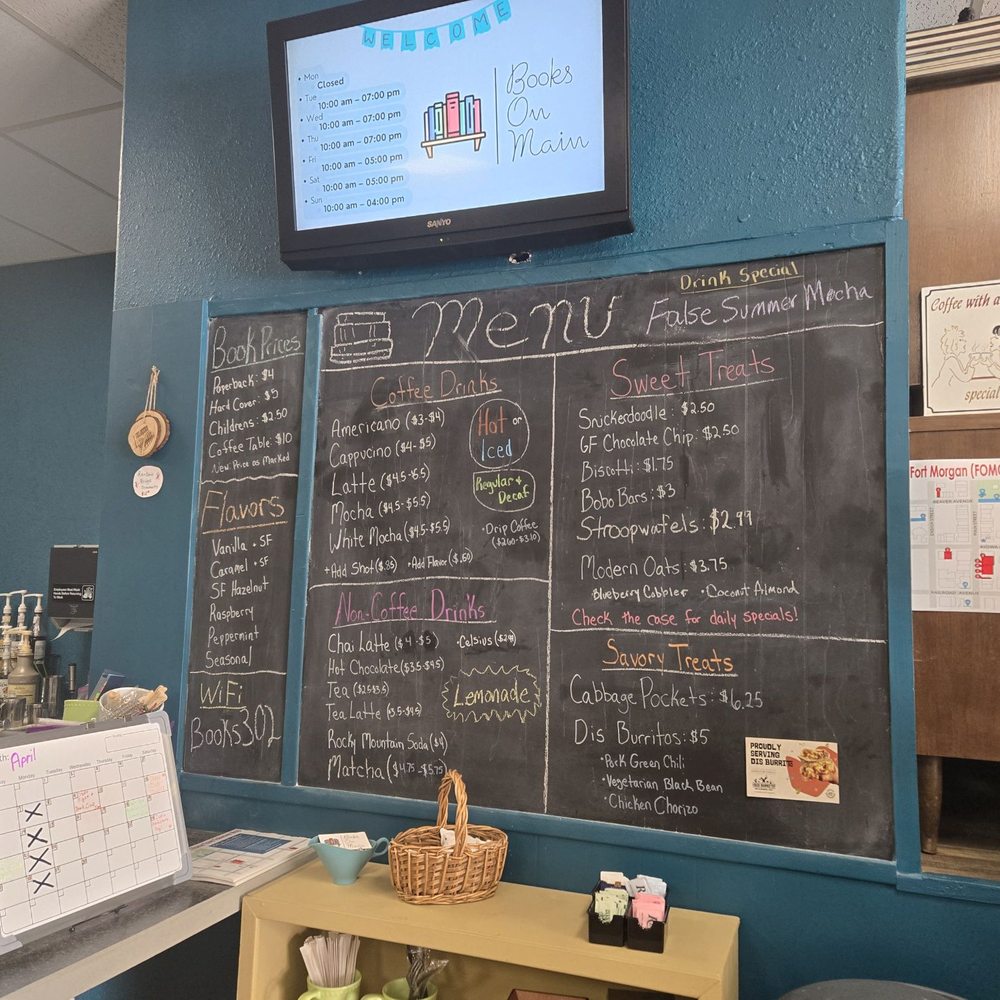 WELCOME
• Mon
Closed
• Tue
10:00 am – 07:00 pm
• Wed
10:00 am – 07:00 pm
• Thu
10:00 am – 07:00 pm
• Fri
10:00 am – 05:00 pm
• Sat
10:00 am – 05:00 pm
• Sun
10:00 am – 04:00 pm
Books
On
Main
SANYO
Book Prices
Paperback: $4
Hard Cover: $5
Childrens: $2.50
Coffee Table: $10
New Price as Marked
Flavors
Vanilla + SF
Caramel + SF
SF Hazelnut
Raspberry
Peppermint
Seasonal
WiFi
Books302
Menu
Drink Special
False Summer Mocha
Coffee Drinks
Americano ($3-$4)
Cappucino ($4-$5)
Latte ($4.5-6.5)
Mocha ($4.5-$5.5)
White Mocha ($4.5-$5.5)
+Add Shot ($.85) •Add Flavor ($.50)
Hot or
Iced
Regular +
Decaf
•Drip Coffee
($2.60-$3.10)
Non-Coffee Drinks
Chai Latte ($4-$5) •Celsius
Hot Chocolate ($3.5-$4.5)
Tea
Tea Latte
Rocky Mountain Soda ($4)
Matcha ($4.75-$5.75)
Lemonade
Sweet Treats
Snickerdoodle: $2.50
GF Chocolate Chip: $2.50
Biscotti: $1.75
Bobo Bars: $3
Stroopwafels: $2.99
Modern Oats: $3.75
Blueberry Cobbler •Coconut Almond
Check the case for daily specials!
Savory Treats
Cabbage Pockets: $6.25
Dis Burritos: $5
•Pork Green Chili
•Vegetarian Black Bean
•Chicken Chorizo
PROUDLY
SERVING
DIS BURRITO
Coffee with a
special
Fort Morgan (FOMO
April